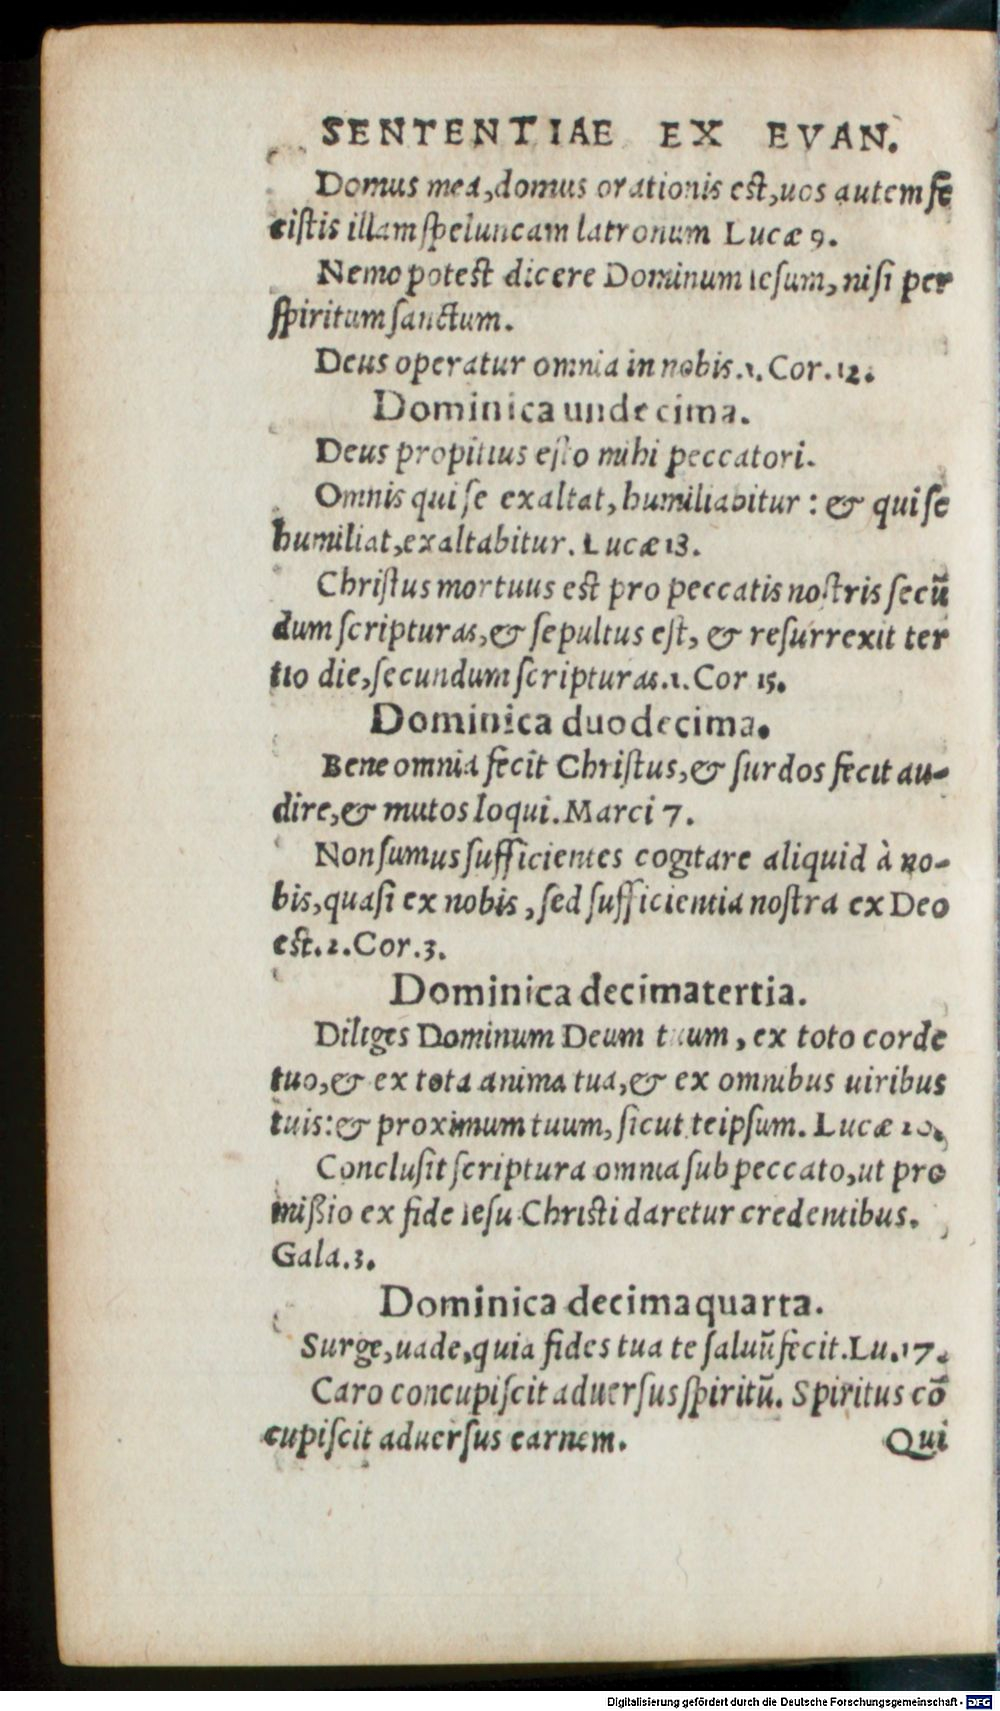 SENTENTIAE EX EVAN.
Domus mea, domus orationis est, uos autem fe
cistis illam speluncam latronum Lucæ 9.
Nemo potest dicere Dominum Iesum, nisi per
spiritum sanctum.
Deus operatur omnia in nobis. 1. Cor. 12.
Dominica undecima.
Deus propitius esto mihi peccatori.
Omnis qui se exaltat, humiliabitur: & qui se
humiliat, exaltabitur. Lucæ 18.
Christus mortuus est pro peccatis nostris secū
dum scripturas, & sepultus est, & resurrexit ter
tio die, secundum scripturas. 1. Cor 15.
Dominica duodecima.
Bene omnia fecit Christus, & surdos fecit au-
dire, & mutos loqui. Marci 7.
Non sumus sufficientes cogitare aliquid à no-
bis, quasi ex nobis, sed sufficientia nostra ex Deo
est. 2. Cor. 3.
Dominica decimatertia.
Diliges Dominum Deum tuum, ex toto corde
tuo, & ex tota anima tua, & ex omnibus uiribus
tuis: & proximum tuum, sicut teipsum. Lucæ 10.
Conclusit scriptura omnia sub peccato, ut pro
mißio ex fide Iesu Christi daretur credentibus.
Gala. 3.
Dominica decimaquarta.
Surge, uade, quia fides tua te saluū fecit. Lu. 17.
Caro concupiscit aduersus spiritū. Spiritus cō
cupiscit aduersus carnem.
Qui
Digitalisierung gefördert durch die Deutsche Forschungsgemeinschaft - DFG